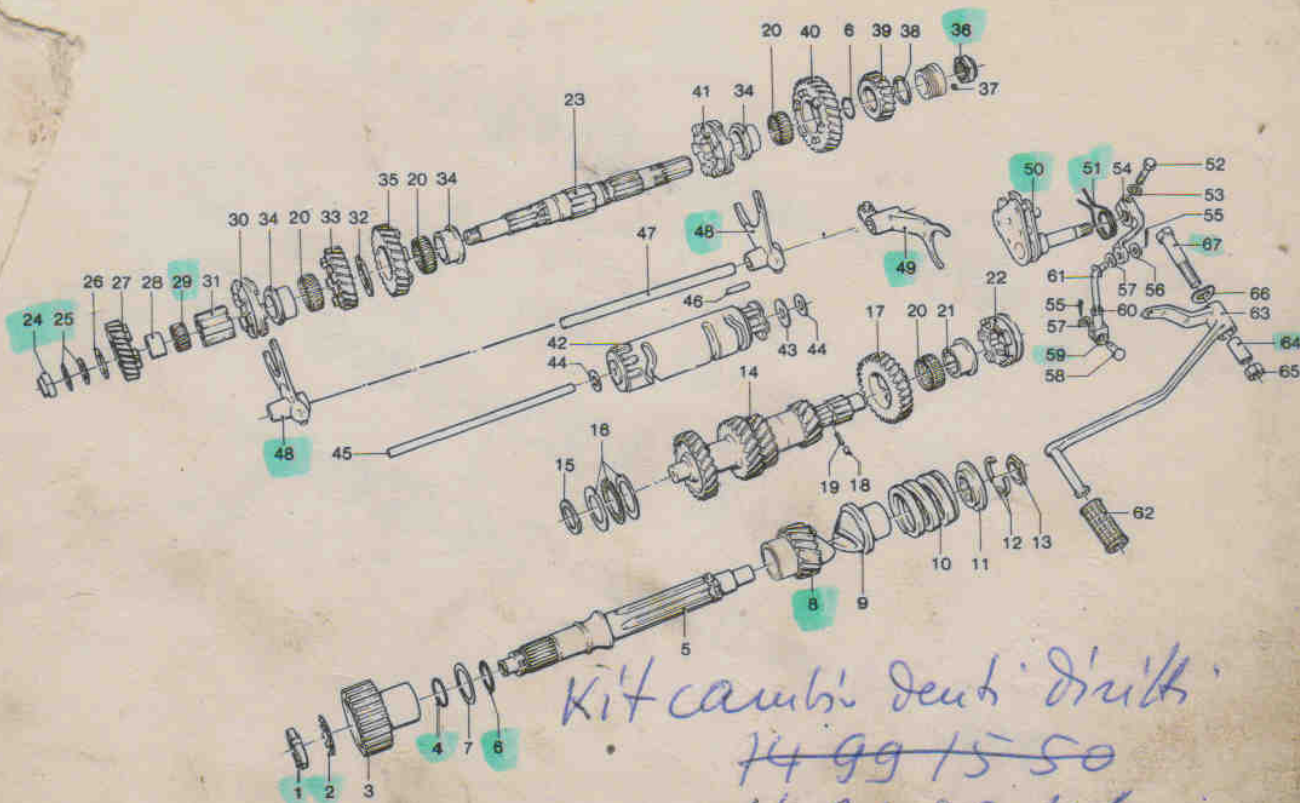 20 40 6 39 38 36
37
41 34
23
35 20 34
30 34 20 33 32
26 27 28 29 31
24 25
48 47 48 49
50 51 54 52
53
55
67
61 57 56 66
55 60 63
57 64
59 65
58
46
42 43 44
44
45
17 20 21 22
14
16
15
19 18
62
10 11 12 13
8 9
5
4 7 6
1 2 3
Kit cambio denti diritti
14 99 15 50